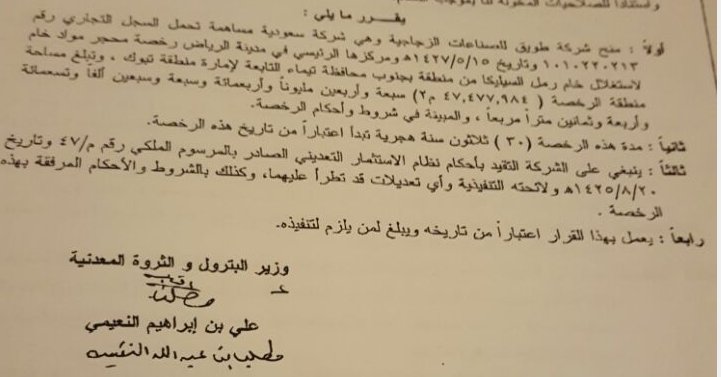 واستناداً للصلاحيات المخولة له بموجب
يقرر ما يلي :
أولاً : منح شركة طويق للصناعات الزجاجية وهي شركة سعودية مساهمة تحمل السجل التجاري رقم
١٠١٠٢٢٠٢١٣ وتاريخ ١٤٢٧/٥/١٥هـ ومركزها الرئيسي في مدينة الرياض رخصة محجر مواد خام
لاستغلال خام رمل السيليكا من منطقة بجنوب محافظة تيماء التابعة لإمارة منطقة تبوك ، وتبلغ مساحة
منطقة الرخصة ( ٤٧,٤٧٧,٩٨٤ م٢) سبعة وأربعين مليوناً وأربعمائة وسبعة وسبعين ألفاً وتسعمائة
وأربعة وثمانين متراً مربعاً ، والمبينة في شروط وأحكام الرخصة.
ثانياً : مدة هذه الرخصة (٣٠ ) ثلاثون سنة هجرية تبدأ اعتباراً من تاريخ هذه الرخصة.
ثالثاً : ينبغي على الشركة التقيد بأحكام نظام الاستثمار التعديني الصادر بالمرسوم الملكي رقم م/٤٧ وتاريخ
١٤٢٥/٨/٢٠هـ ولائحته التنفيذية وأي تعديلات قد تطرأ عليهما، وكذلك بالشروط والأحكام المرفقة بهذه
الرخصة .
رابعاً : يعمل بهذا القرار اعتباراً من تاريخه ويبلغ لمن يلزم لتنفيذه.
وزير البترول و الثروة المعدنية
علي بن إبراهيم النعيمي
بن عبدالله